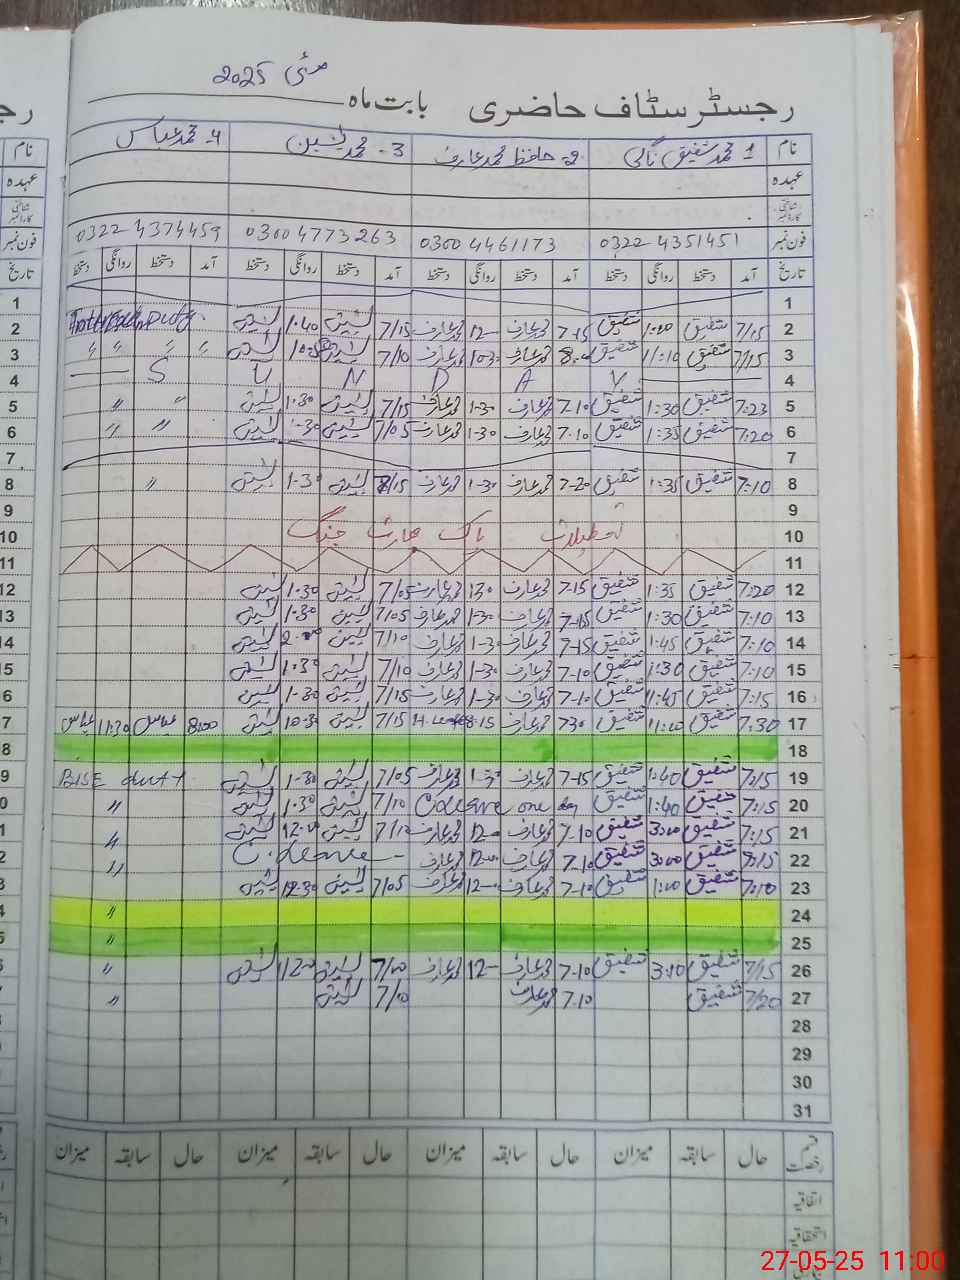 مئی 2025
رجسٹر سٹاف حاضری بابت ماہ
نام 1 محمد شفیق 2- حافظ محمد عارف 3- محمد یٰسین 4- محمد عباس نام
عہدہ عہدہ
فون نمبر 0322 4351451 0300 4461173 0300 4773263 0322 4374459 فون نمبر
تاریخ آمد دستخط روانگی دستخط آمد دستخط روانگی دستخط آمد دستخط روانگی دستخط آمد دستخط روانگی دستخط تاریخ
1 1
2 7/15 شفیق 1:00 شفیق 7-15 محمد عارف 12- محمد عارف 7/15 یٰسین 1:40 یٰسین duty 2
3 7/15 شفیق 11:10 شفیق محمد عارف 10-30 محمد عارف 7/10 یٰسین یٰسین " " " " 3
4 S U N D A Y 4
5 7:23 شفیق 1:30 شفیق 7-10 محمد عارف 1-30 محمد عارف 7/15 یٰسین 1-30 یٰسین " " 5
6 7:20 شفیق 1:35 شفیق 7-10 محمد عارف 1-30 محمد عارف 7/05 یٰسین 1-30 یٰسین " " 6
7 7
8 7:10 شفیق 1:35 شفیق 7-20 محمد عارف 1-30 محمد عارف یٰسین 1-30 یٰسین " 8
9 9
10 تعطیلات پاک بھارت جنگ 10
11 11
12 7:20 شفیق 1:35 شفیق 7-15 محمد عارف 130 محمد عارف 7/05 یٰسین 1-30 یٰسین 12
13 7:10 شفیق 1:30 شفیق 7-15 محمد عارف 1-30 محمد عارف 7/05 یٰسین 1-30 یٰسین 13
14 7:10 شفیق 1:45 شفیق 7-15 محمد عارف 1-30 محمد عارف 7/10 یٰسین 2-00 یٰسین 14
15 7:10 شفیق 1:30 شفیق 7-10 محمد عارف 1-30 محمد عارف 7/10 یٰسین 1-30 یٰسین 5
16 7:15 شفیق 1:45 شفیق 7-10 محمد عارف 1-30 محمد عارف 7/15 یٰسین 1-30 یٰسین 6
17 7:30 شفیق 11:00 شفیق 730 محمد عارف 8-15 H. Leave 7/15 یٰسین 10-30 یٰسین 8:00 عباس 11:30 عباس 7
18 8
19 7:15 شفیق 1:40 شفیق 7-15 محمد عارف 1-30 محمد عارف 7/05 یٰسین 1-30 یٰسین BISE duty 9
20 7:15 شفیق 1:40 شفیق C leave one day 7/10 یٰسین 1-30 یٰسین " 0
21 7:15 شفیق 3:00 شفیق 7-10 محمد عارف 12-00 محمد عارف یٰسین 12-00 یٰسین " 1
22 7:15 شفیق 3:00 شفیق 7-10 محمد عارف 12-00 محمد عارف C. leave - " 2
23 7:10 شفیق 1:00 شفیق 7-10 محمد عارف 12- محمد عارف 7/05 یٰسین 12-30 یٰسین 3
24 " 4
25 " 5
26 7/15 شفیق 3:10 شفیق 7-10 محمد عارف 12- محمد عارف 7/00 یٰسین 12-00 یٰسین " 6
27 7/20 شفیق 7-10 محمد عارف 7/10 یٰسین "
28
29
30
31
قسم رخصت حال سابقہ میزان حال سابقہ میزان حال سابقہ میزان حال سابقہ میزان
اتفاقیہ
استحقاقیہ
27-05-25 11:00